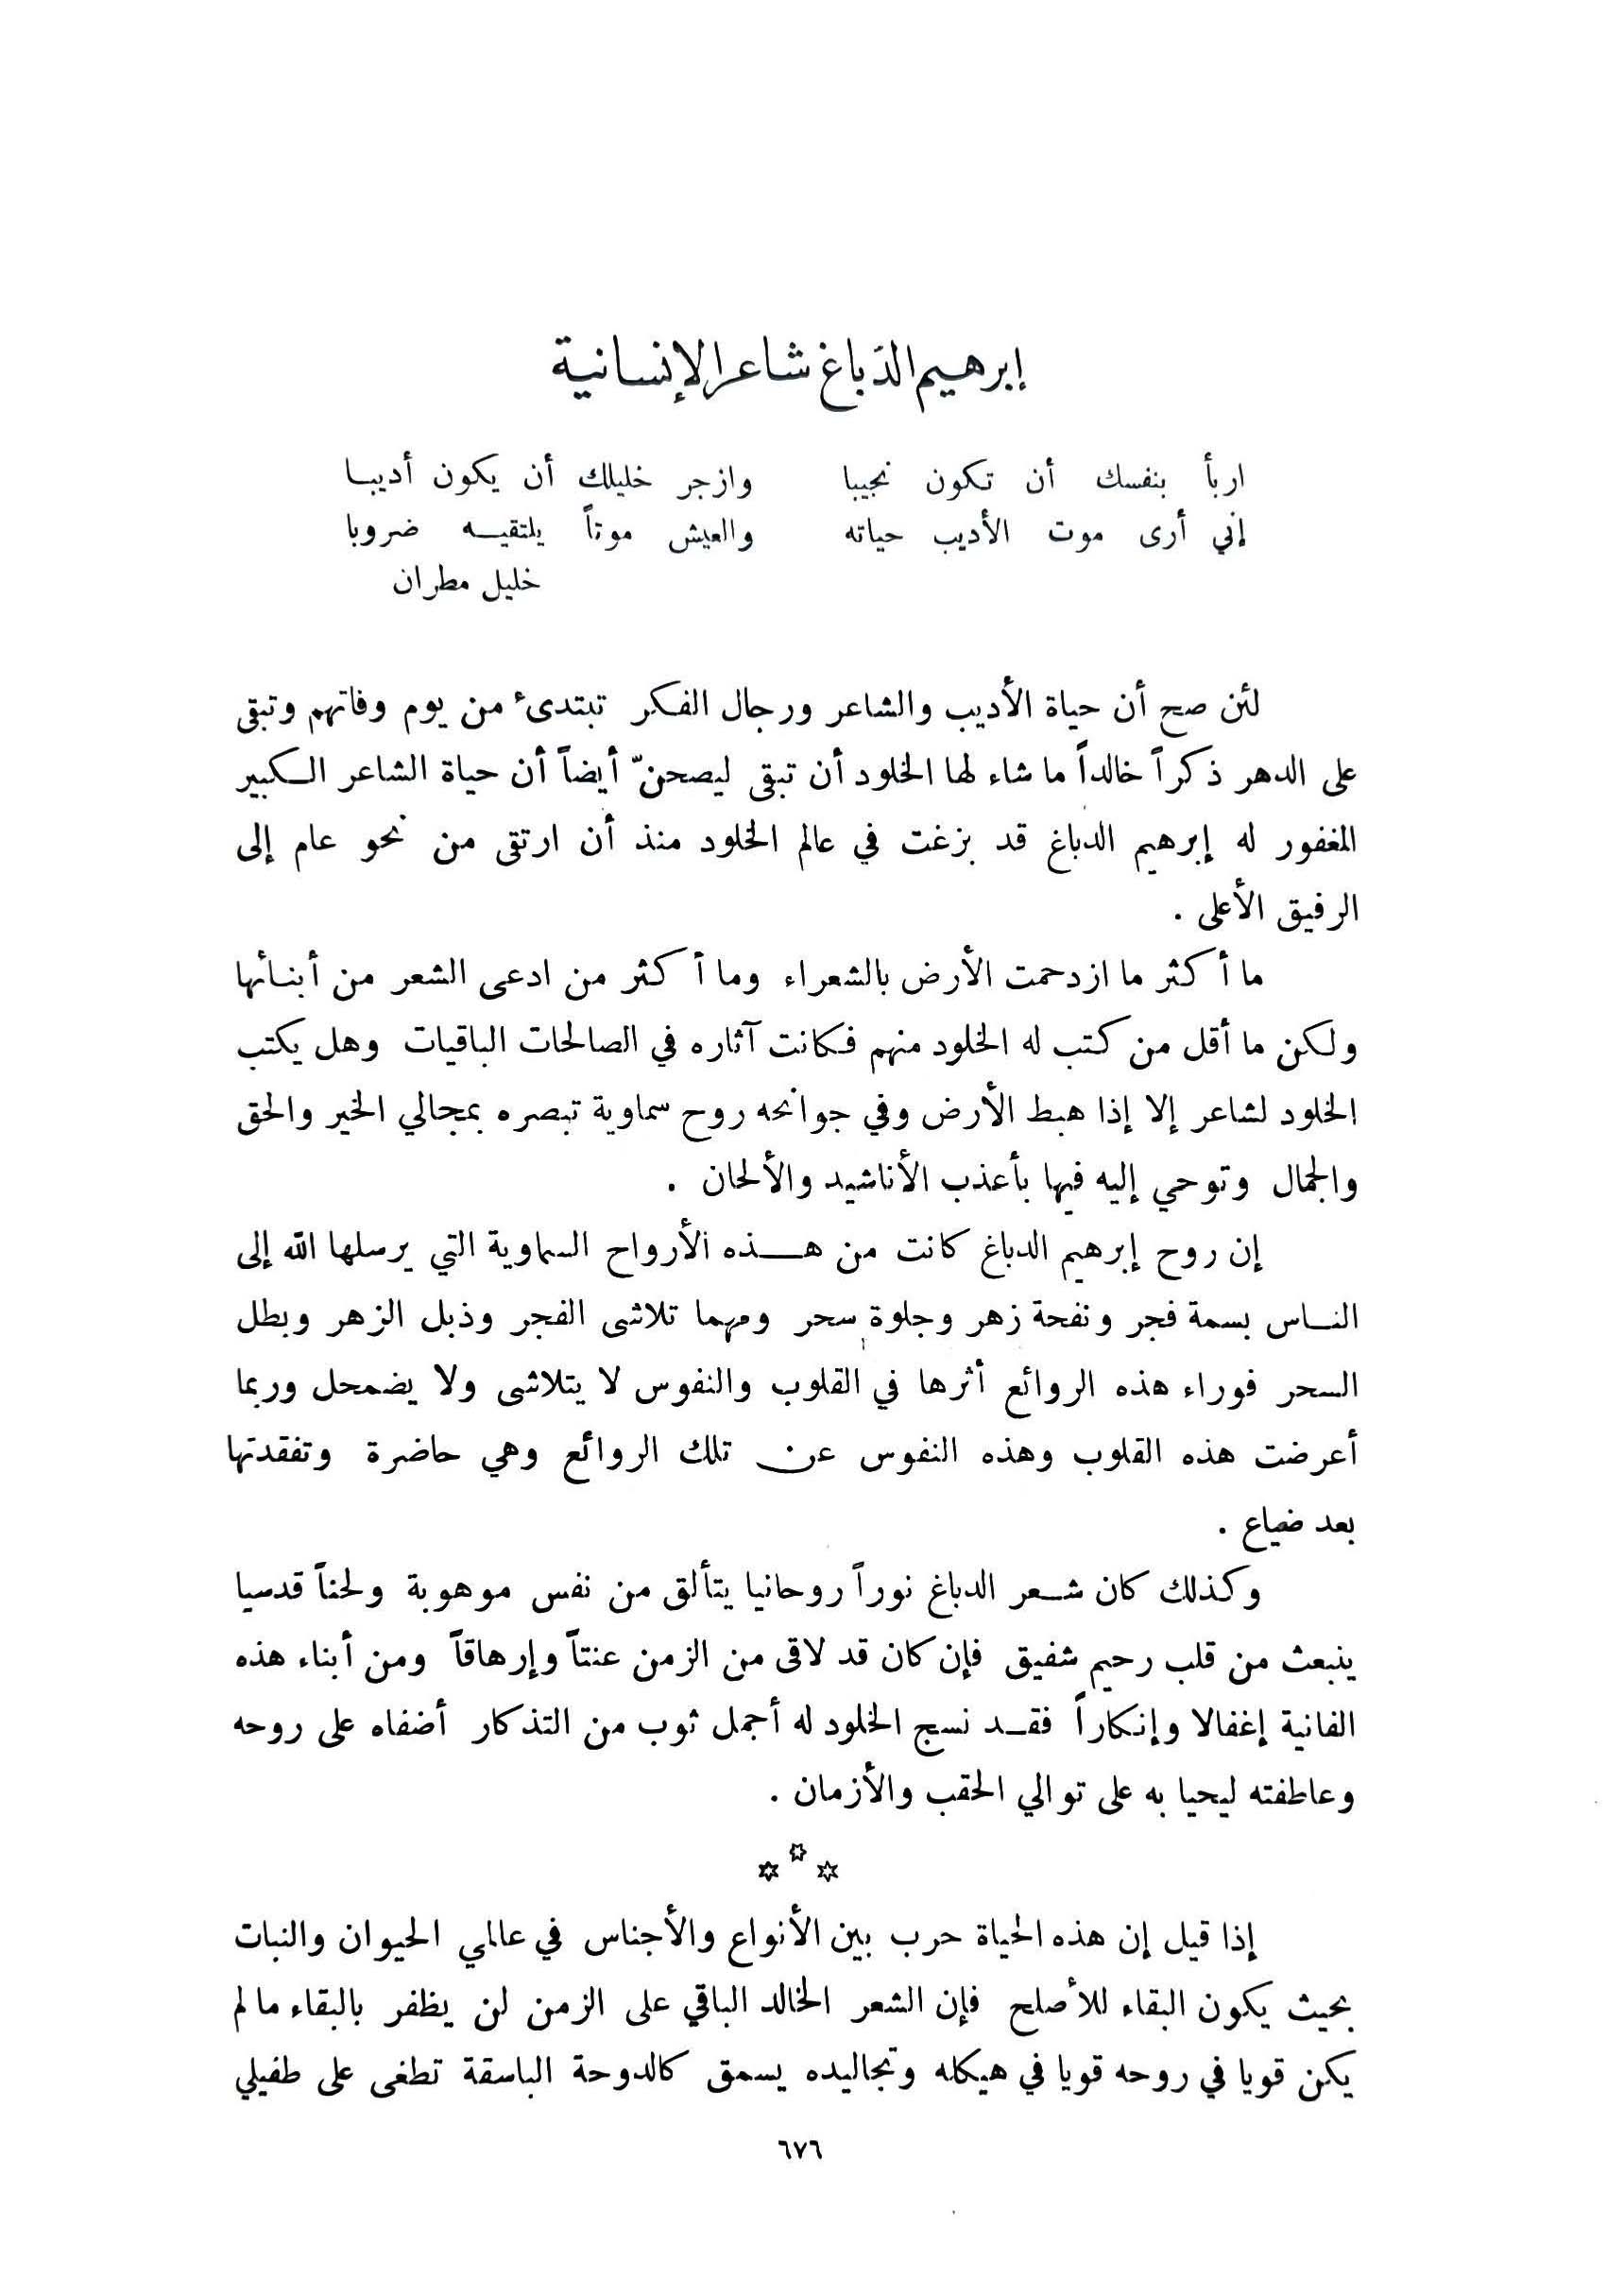 إبرهيم الدّباغ شاعر الإنسانية
اربأ بنفسك أن تكون نجيبا وازجر خليلك أن يكون أديبا
إني أرى موت الأديب حياته والعيش موتاً يلتقيه ضروبا
خليل مطران
لئن صح أن حياة الأديب والشاعر ورجال الفكر تبتدىء من يوم وفاتهم وتبقى
على الدهر ذكراً خالداً ما شاء لها الخلود أن تبقى ليصحنّ أيضاً أن حياة الشاعر الكبير
المغفور له إبرهيم الدباغ قد بزغت في عالم الخلود منذ أن ارتقى من نحو عام إلى
الرفيق الأعلى .
ما أكثر ما ازدحمت الأرض بالشعراء وما أكثر من ادعى الشعر من أبنائها
ولكن ما أقل من كتب له الخلود منهم فكانت آثاره في الصالحات الباقيات وهل يكتب
الخلود لشاعر إلا إذا هبط الأرض وفي جوانحه روح سماوية تبصره بمجالي الخير والحق
والجمال وتوحي إليه فيها بأعذب الأناشيد والألحان .
إن روح إبرهيم الدباغ كانت من هذه الأرواح السماوية التي يرسلها الله إلى
الناس بسمة فجر ونفحة زهر وجلوة سحر ومهما تلاشى الفجر وذبل الزهر وبطل
السحر فوراء هذه الروائع أثرها في القلوب والنفوس لا يتلاشى ولا يضمحل وربما
أعرضت هذه القلوب وهذه النفوس عن تلك الروائع وهي حاضرة وتفقدتها
بعد ضياع .
وكذلك كان شعر الدباغ نوراً روحانيا يتألق من نفس موهوبة ولحناً قدسيا
ينبعث من قلب رحيم شفيق فإن كان قد لاقى من الزمن عنتاً وإرهاقاً ومن أبناء هذه
الفانية إغفالا وإنكاراً فقد نسج الخلود له أجمل ثوب من التذكار أضفاه على روحه
وعاطفته ليحيا به على توالي الحقب والأزمان .
* * *
إذا قيل إن هذه الحياة حرب بين الأنواع والأجناس في عالمي الحيوان والنبات
بحيث يكون البقاء للأصلح فإن الشعر الخالد الباقي على الزمن لن يظفر بالبقاء ما لم
يكن قويا في روحه قويا في هيكله وتجاليده يسمق كالدوحة الباسقة تطغى على طفيلي
٦٧٦